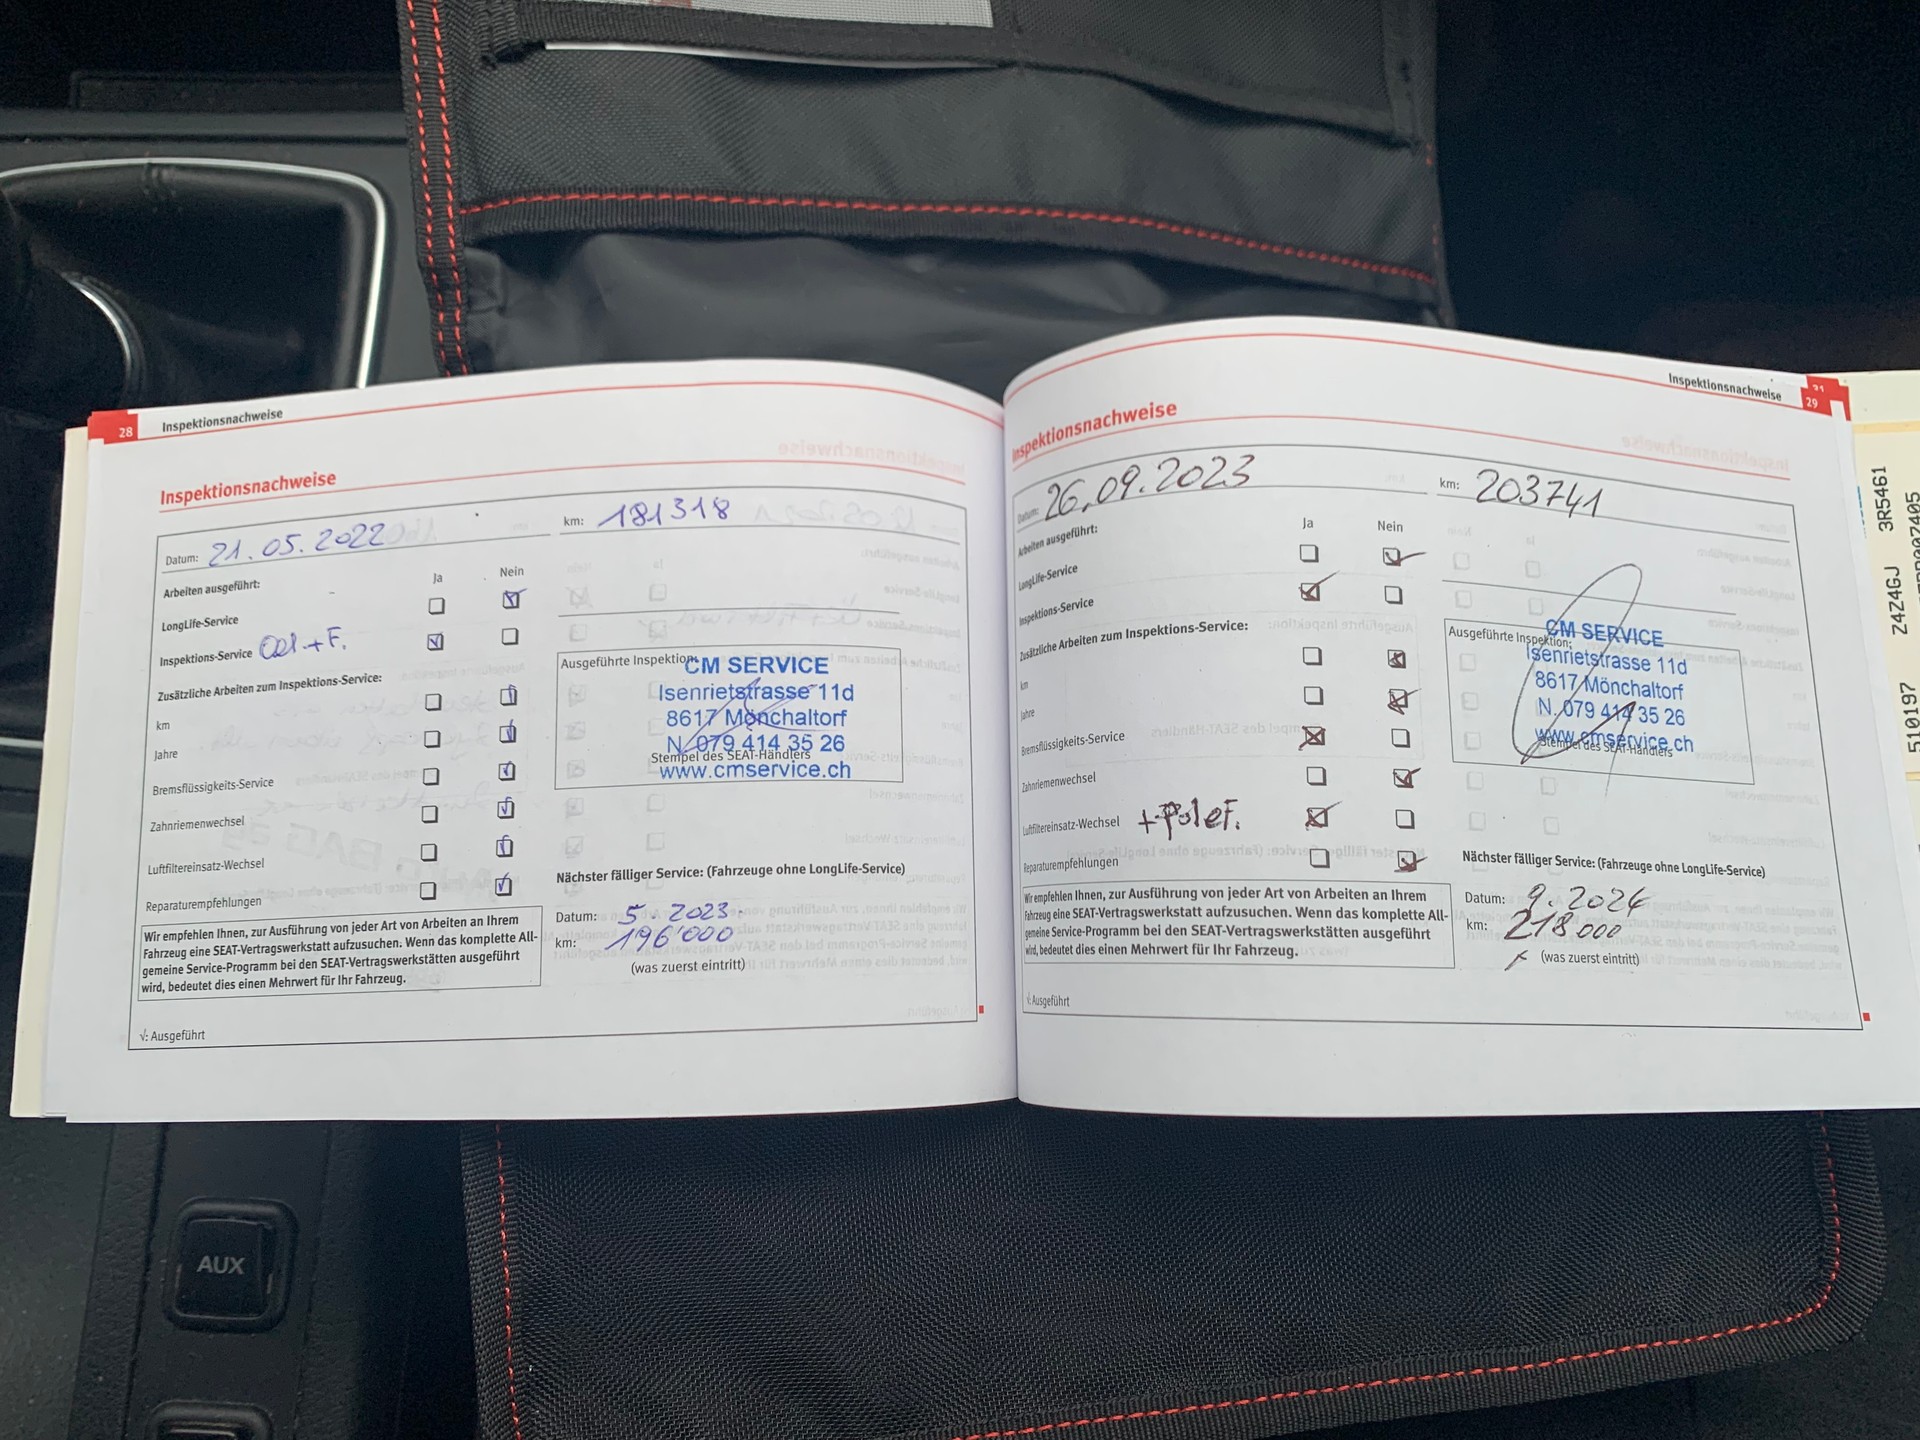 28 Inspektionsnachweise
Inspektionsnachweise
Datum: 21.05.2022 km: 181318
Arbeiten ausgeführt: Ja Nein
LongLife-Service
Inspektions-Service Oel + F.
Zusätzliche Arbeiten zum Inspektions-Service:
km
Jahre
Bremsflüssigkeits-Service
Zahnriemenwechsel
Luftfiltereinsatz-Wechsel
Reparaturempfehlungen
Wir empfehlen Ihnen, zur Ausführung von jeder Art von Arbeiten an Ihrem
Fahrzeug eine SEAT-Vertragswerkstatt aufzusuchen. Wenn das komplette All-
gemeine Service-Programm bei den SEAT-Vertragswerkstätten ausgeführt
wird, bedeutet dies einen Mehrwert für Ihr Fahrzeug.
√: Ausgeführt
Ausgeführte Inspektion:
CM SERVICE
Isenrietstrasse 11d
8617 Mönchaltorf
N. 079 414 35 26
Stempel des SEAT-Händlers
www.cmservice.ch
Nächster fälliger Service: (Fahrzeuge ohne LongLife-Service)
Datum: 5. 2023.
km: 196'000
(was zuerst eintritt)
Inspektionsnachweise 29
31
Inspektionsnachweise
Datum: 26.09.2023 km: 203741
Arbeiten ausgeführt: Ja Nein
LongLife-Service
Inspektions-Service
Zusätzliche Arbeiten zum Inspektions-Service:
km
Jahre
Bremsflüssigkeits-Service
Zahnriemenwechsel
Luftfiltereinsatz-Wechsel
Reparaturempfehlungen
Wir empfehlen Ihnen, zur Ausführung von jeder Art von Arbeiten an Ihrem
Fahrzeug eine SEAT-Vertragswerkstatt aufzusuchen. Wenn das komplette All-
gemeine Service-Programm bei den SEAT-Vertragswerkstätten ausgeführt
wird, bedeutet dies einen Mehrwert für Ihr Fahrzeug.
√: Ausgeführt
Ausgeführte Inspektion:
CM SERVICE
Isenrietstrasse 11d
8617 Mönchaltorf
N. 079 414 35 26
www.cmservice.ch
Stempel des SEAT-Händlers
Nächster fälliger Service: (Fahrzeuge ohne LongLife-Service)
Datum: 9. 2024
km: 218000
(was zuerst eintritt)
3R5461
Z4Z4GJ
510197
AUX